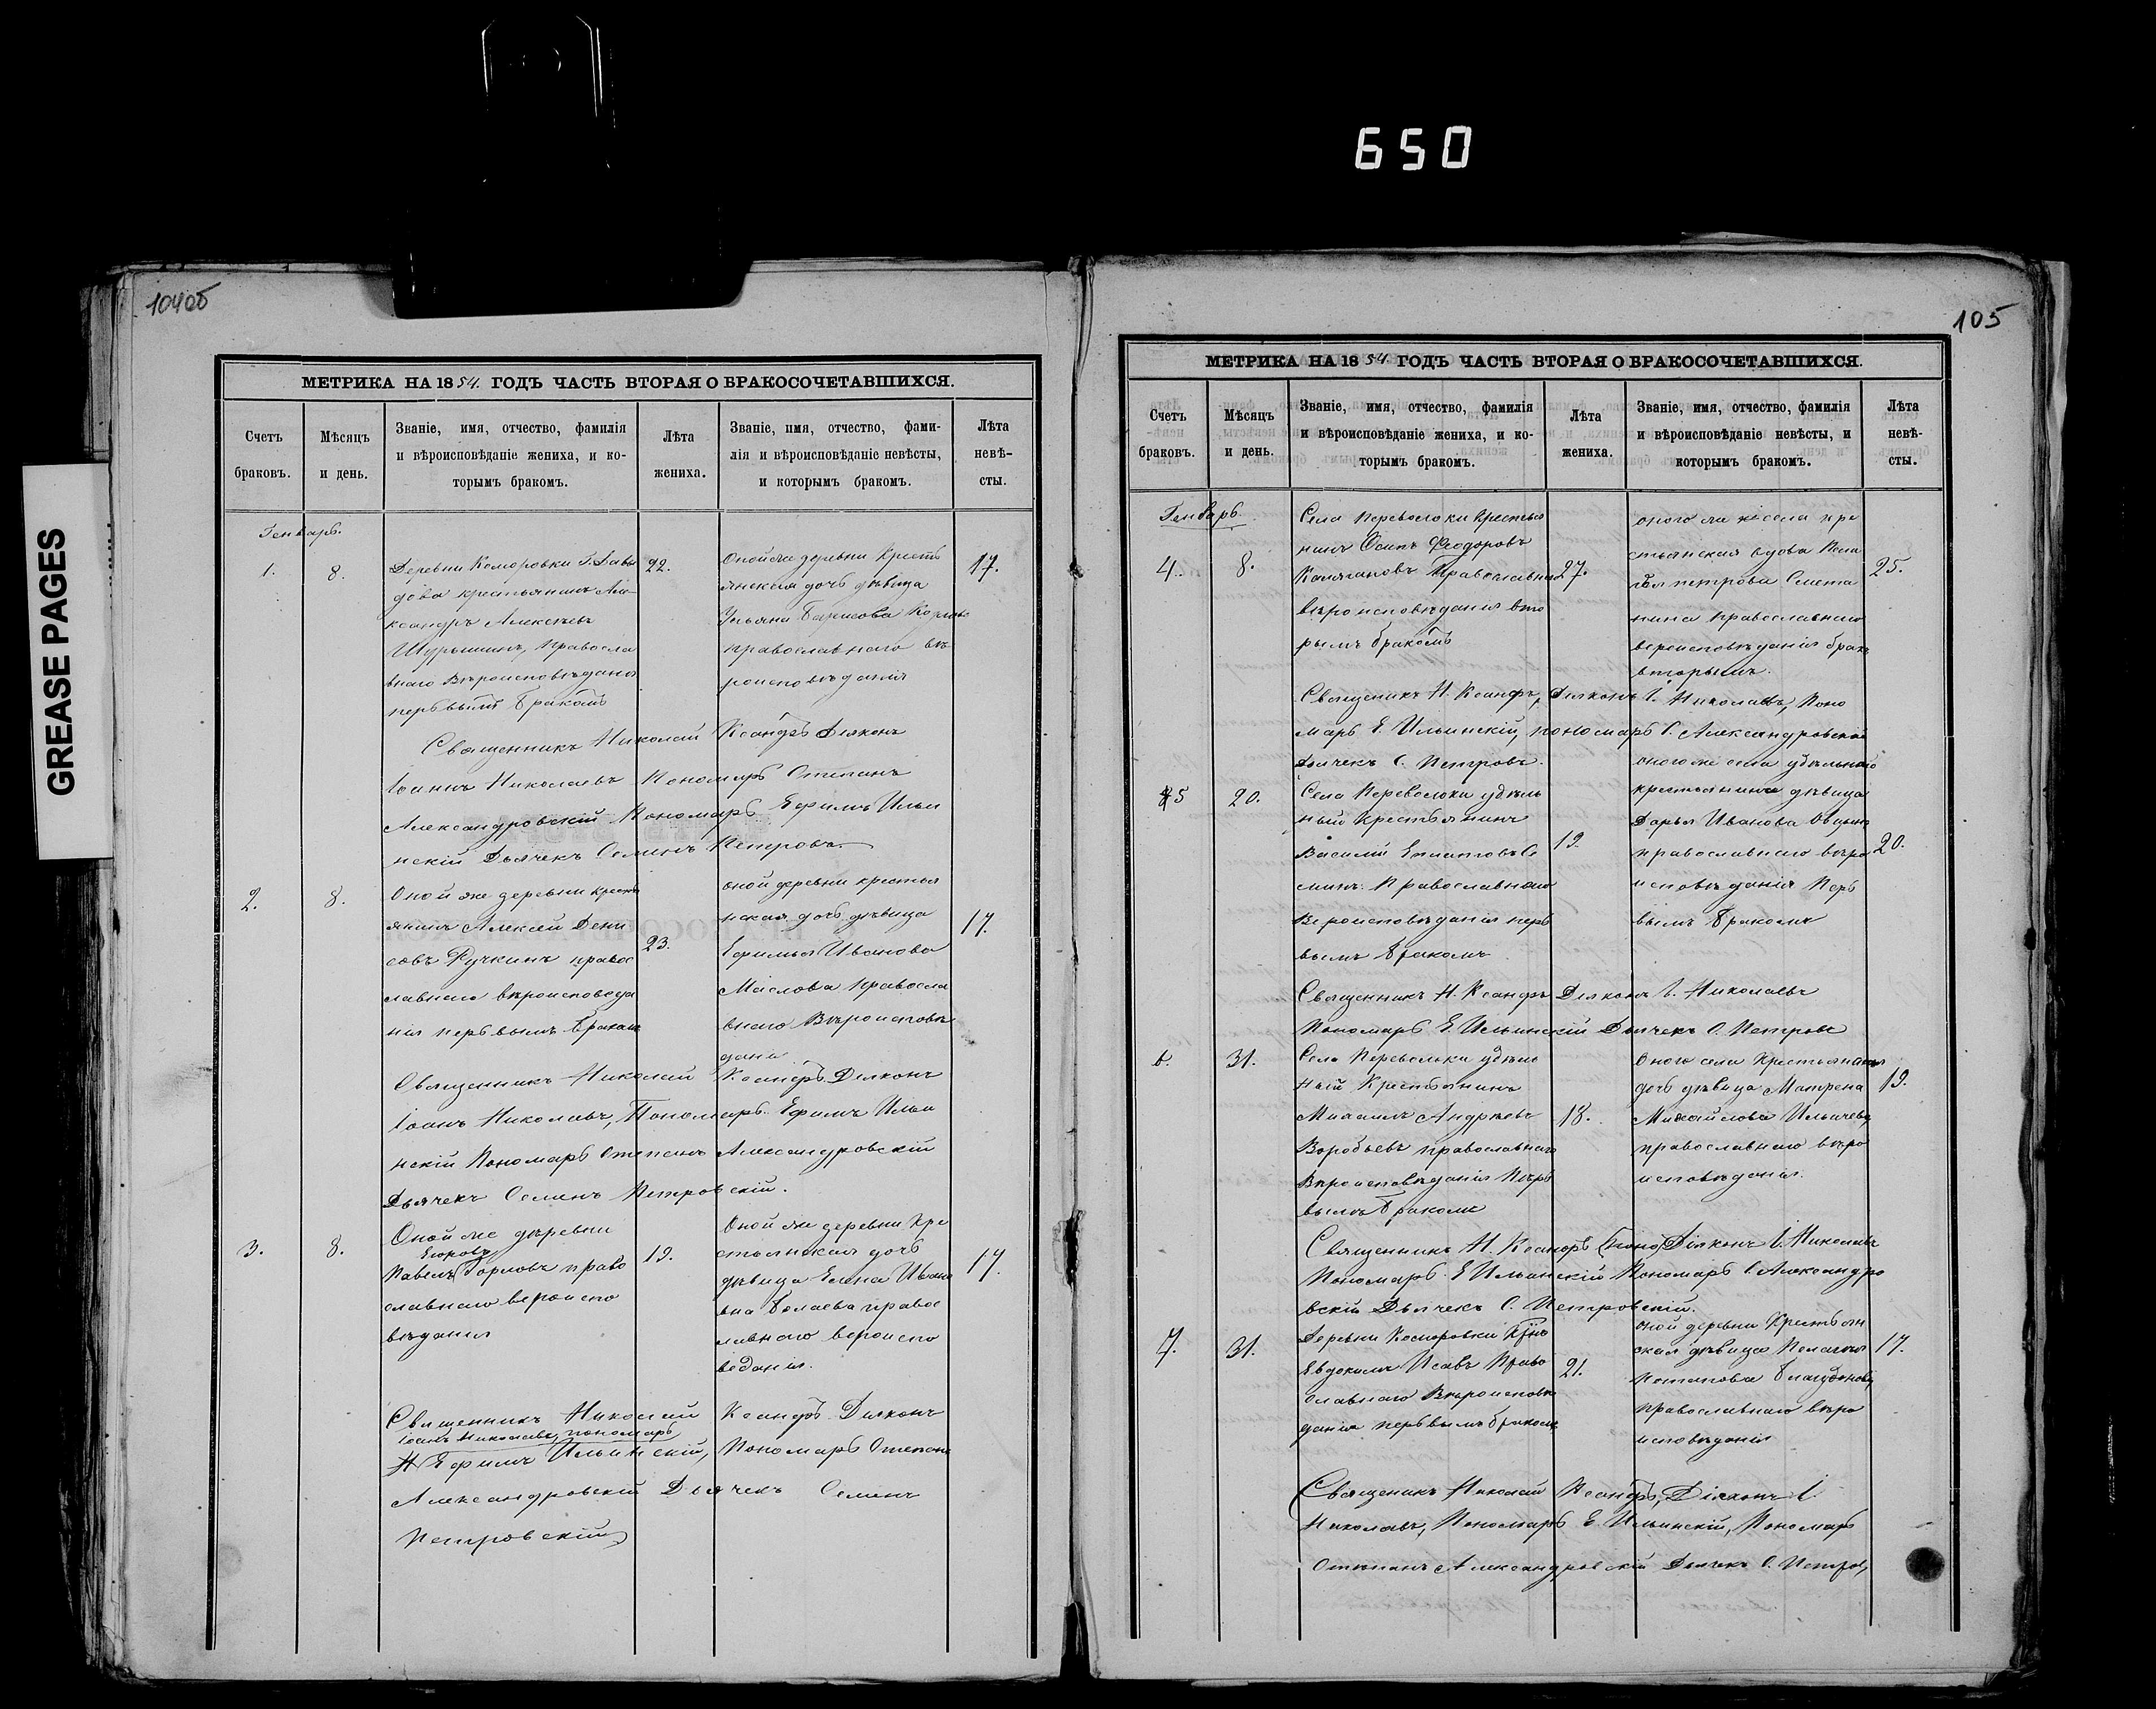 650
GREASE PAGES
104об
МЕТРИКА НА 1854. ГОДЪ ЧАСТЬ ВТОРАЯ О БРАКОСОЧЕТАВШИХСЯ.
Счетъ браковъ.
Мѣсяцъ и день.
Званіе, имя, отчество, фамилія
и вѣроисповѣданіе жениха, и ко-
торымъ бракомъ.
Лѣта жениха.
Званіе, имя, отчество, фами-
лія и вѣроисповѣданіе невѣсты,
и которымъ бракомъ.
Лѣта невѣ-
сты.
Генварь.
1.
8.
Деревни Коморовки Г. Давы
дова крестьянинъ Але
ксандръ Алексѣевъ
Шурышинъ, правосла
внаго Вѣроисповѣдана
первымъ бракомъ
22.
Оной же деревни Крестъ
янская дочь дѣвица
Ульяна Борисова
православнаго вѣ
роисповѣданія
17.
Священникъ Николай Ксанфъ Діяконъ
Іоаннъ Николаевъ Пономарь Степанъ
Александровскій Пономарь Ефимъ Ильи
нскій Дьячекъ Семенъ Петровъ
2.
8.
Оной же деревни крестъ
янинъ Алексей Дени
совъ Ручкинъ правос
лавнаго вѣроисповеда
нія первымъ бракомъ
23.
оной деревни крестья
нская дочь дѣвица
Ефимья Иванова
Маслова Правосла
внаго Вѣроисповѣ
дані
17.
Священникъ Николай Ксанфъ Діяконъ
Іоанъ Николавъ, Пономарь Ефимъ Ильи
нскій Пономарь Степанъ Александровскій
Дьячекъ Семенъ Петровскій.
3.
8.
Оной же деревни
Егоровъ
Павелъ Горловъ право
славнаго вероиспо
вѣданія
19.
Оной же деревни Кре
стьянская дочь
дѣвица Елена Ивано
вна правос
лавнаго вероиспо
веданія.
17.
Священникъ Николай Ксанфъ Діяконъ
Іоанъ Николавъ, пономарь
Ефимъ Ильинскій, Пономарь Степанъ
Александровскій Дьячекъ Семенъ
Петровскій
105
МЕТРИКА НА 1854. ГОДЪ ЧАСТЬ ВТОРАЯ О БРАКОСОЧЕТАВШИХСЯ.
Счетъ
браковъ.
Мѣсяцъ
и день.
Званіе, имя, отчество, фамилія
и вѣроисповѣданіе жениха, и ко-
торымъ бракомъ.
Лѣта
жениха.
Званіе, имя, отчество, фамилія
и вѣроисповѣданіе невѣсты, и
которымъ бракомъ.
Лѣта
невѣ-
сты.
Генварь.
4.
8.
Села Переволоки Крестья
нинъ Осипъ Феодоровъ
Православна
вѣроисповѣданія вто
рымъ бракомъ
27.
оного же села кре
стьянская вдова Пела
гея петрова Смета
нина православнаго
вероисповѣданія брак
вторымъ.
25.
Священикъ Н. Ксанфъ, Діяконъ І. Николавъ, Поно
марь Е. Ильинскій, пономарь С. Александровскій
Дьячекъ С. Петровъ.
5
20.
Села Переволоки удѣль
ный крестьянинъ
Василій
Православнаго
Вероисповѣданія пер
вымъ бракомъ
19.
оного же села удѣльнаго
крестьянина дѣвица
Дарья Иванова
православнаго вѣро
исповѣданія Пер
вымъ бракомъ
20.
Священникъ Н. Ксанфъ Діяконъ І. Николаевъ
Пономарь Е. Ильинскій Дьячекъ С. Петровъ
6.
31.
Села Переволоки удѣль
ный Крестьянинъ
Михаилъ Андрѣевъ
Воробьевъ православнаго
Вѣроисповѣданія Пѣр
вымъ бракомъ
18.
Оного села Крестьянская
дочь дѣвица Матрена
Михайлова Ильичева
православнаго вѣро
исповѣданія.
19.
Священникъ Н. Ксанфъ Діяконъ І. Николавъ
Пономарь Е Ильинскій Пономарь С. Александро
вскій Дьячекъ С. Петровскій.
7.
31.
Деревни Коморовки
Евдокимъ Исавъ Право
славнаго Вѣроисповѣ
данія первымъ бракомъ
21.
оной деревни Крестьян
ская дѣвица Пелагея
Потапова
православнаго вѣро
исповѣданія
17.
Священикъ Николай Ксанфъ, Діяконъ І.
Николавъ, Пономарь Е. Ильинскій, Пономарь
Степанъ Александровскій Дьячекъ С. Петровъ